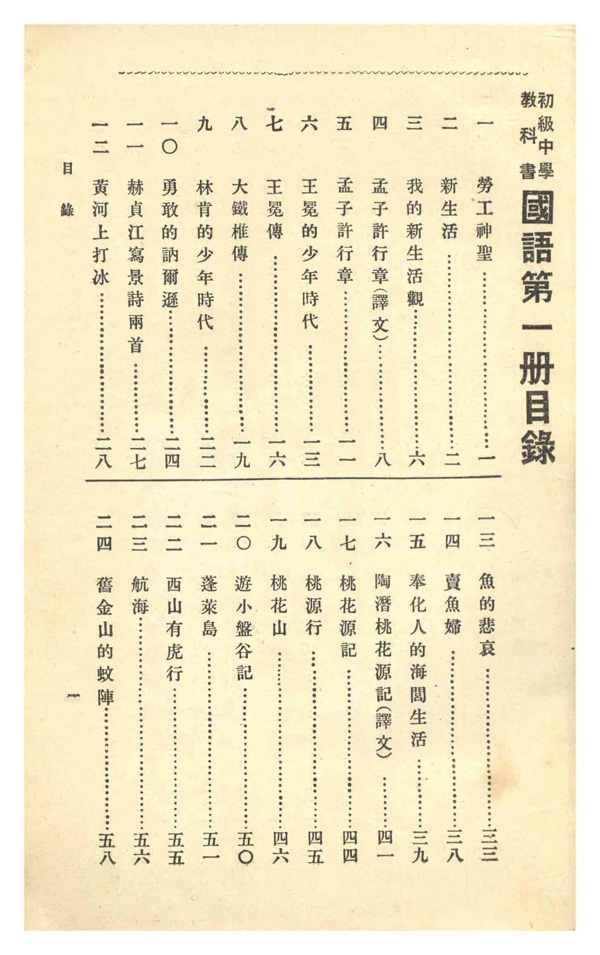 初級中學
教科書
國語第一册目錄
一　勞工神聖……一
二　新生活……二
三　我的新生活觀……六
四　孟子許行章(譯文)……八
五　孟子許行章……一一
六　王冕的少年時代……一三
七　王冕傳……一六
八　大鐵椎傳……一九
九　林肯的少年時代……二二
一〇　勇敢的訥爾遜……二四
一一　赫貞江寫景詩兩首……二七
一二　黃河上打冰……二八
一三　魚的悲哀……三三
一四　賣魚婦……三八
一五　奉化人的海閭生活……三九
一六　陶潛桃花源記(譯文)……四一
一七　桃花源記……四四
一八　桃源行……四五
一九　桃花山……四六
二〇　遊小盤谷記……五〇
二一　蓬萊島……五一
二二　西山有虎行……五五
二三　航海……五六
二四　舊金山的蚊陣……五八
目錄
一